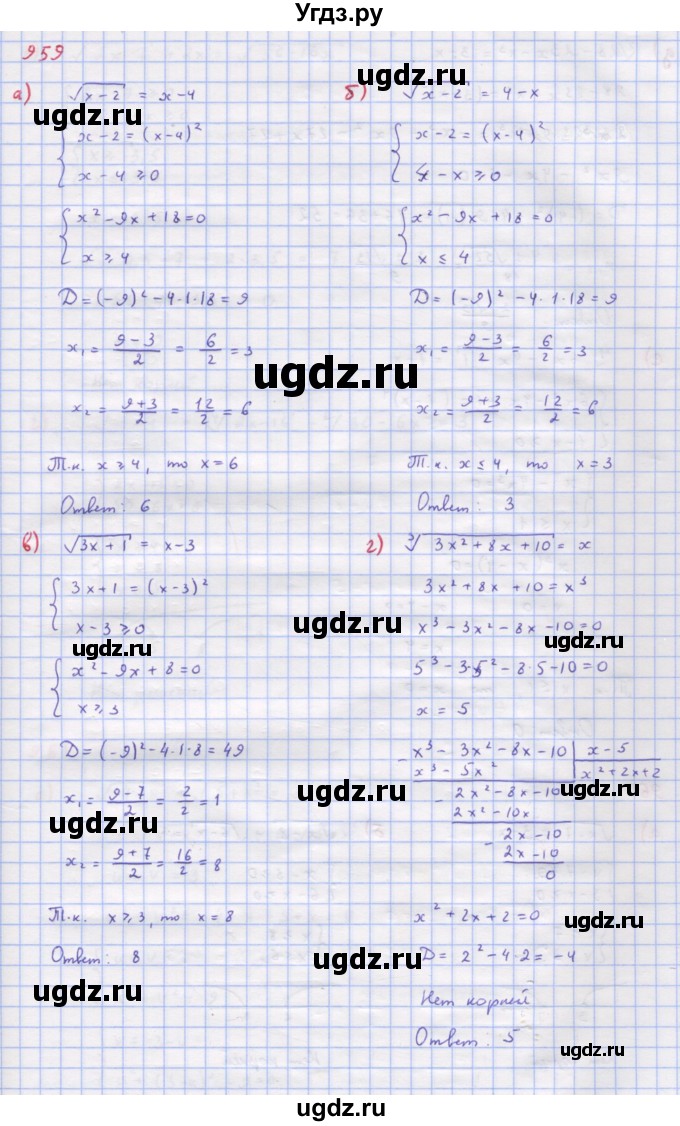 Угдз.ру
959
а) √x-2 = x-4
ugdz.ru
{ x-2 = (x-4)²
x-4 ≥ 0
{ x² - 9x + 18 = 0
x ≥ 4
D = (-9)² - 4·1·18 = 9
x₁ = 9-3/2 = 6/2 = 3
ugdz.ru
x₂ = 9+3/2 = 12/2 = 6
Т.к. x ≥ 4, то x = 6
Ответ: 6
ugdz.ru
б) √x-2 = 4-x
{ x-2 = (x-4)²
4-x ≥ 0
{ x² - 9x + 18 = 0
x ≤ 4
D = (-9)² - 4·1·18 = 9
x₁ = 9-3/2 = 6/2 = 3
x₂ = 9+3/2 = 12/2 = 6
Т.к. x ≤ 4, то x = 3
Ответ: 3
в) √3x+1 = x-3
{ 3x+1 = (x-3)²
x-3 ≥ 0
ugdz.ru
{ x² - 9x + 8 = 0
x ≥ 3
D = (-9)² - 4·1·8 = 49
x₁ = 9-7/2 = 2/2 = 1
ugdz.ru
x₂ = 9+7/2 = 16/2 = 8
Т.к. x ≥ 3, то x = 8
Ответ: 8
ugdz.ru
г) ³√3x²+8x+10 = x
3x² + 8x + 10 = x³
ugdz.ru
x³ - 3x² - 8x - 10 = 0
ugdz.ru
5³ - 3·5² - 8·5 - 10 = 0
x = 5
x³ - 3x² - 8x - 10 | x - 5
x³ - 5x² | x² + 2x + 2
ugdz.ru
2x² - 8x - 10
2x² - 10x
2x - 10
2x - 10
0
x² + 2x + 2 = 0
ugdz.ru
D = 2² - 4·2 = -4
ugdz.ru
Нет корней
Ответ: 5
ugdz.ru
ugdz.ru